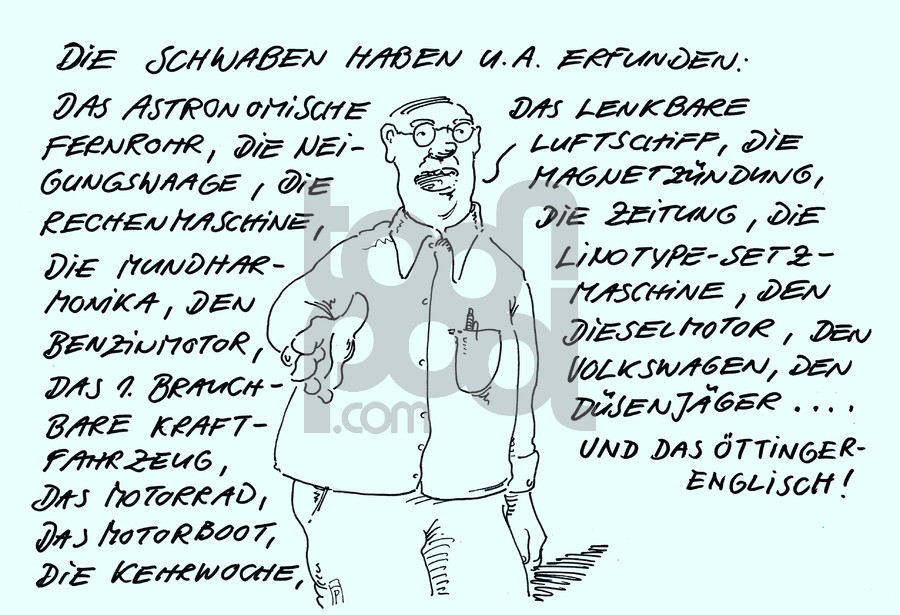 DIE SCHWABEN HABEN U.A. ERFUNDEN:
DAS ASTRONOMISCHE
FERNROHR, DIE NEI-
GUNGSWAAGE, DIE
RECHENMASCHINE,
DIE MUNDHAR-
MONIKA, DEN
BENZINMOTOR,
DAS 1. BRAUCH-
BARE KRAFT-
FAHRZEUG,
DAS MOTORRAD,
DAS MOTORBOOT,
DIE KEHRWOCHE,
DAS LENKBARE
LUFTSCHIFF, DIE
MAGNETZÜNDUNG,
DIE ZEITUNG, DIE
LINOTYPE-SETZ-
MASCHINE, DEN
DIESELMOTOR, DEN
VOLKSWAGEN, DEN
DÜSENJÄGER ....
UND DAS ÖTTINGER-
ENGLISCH!
toon
pool
.com